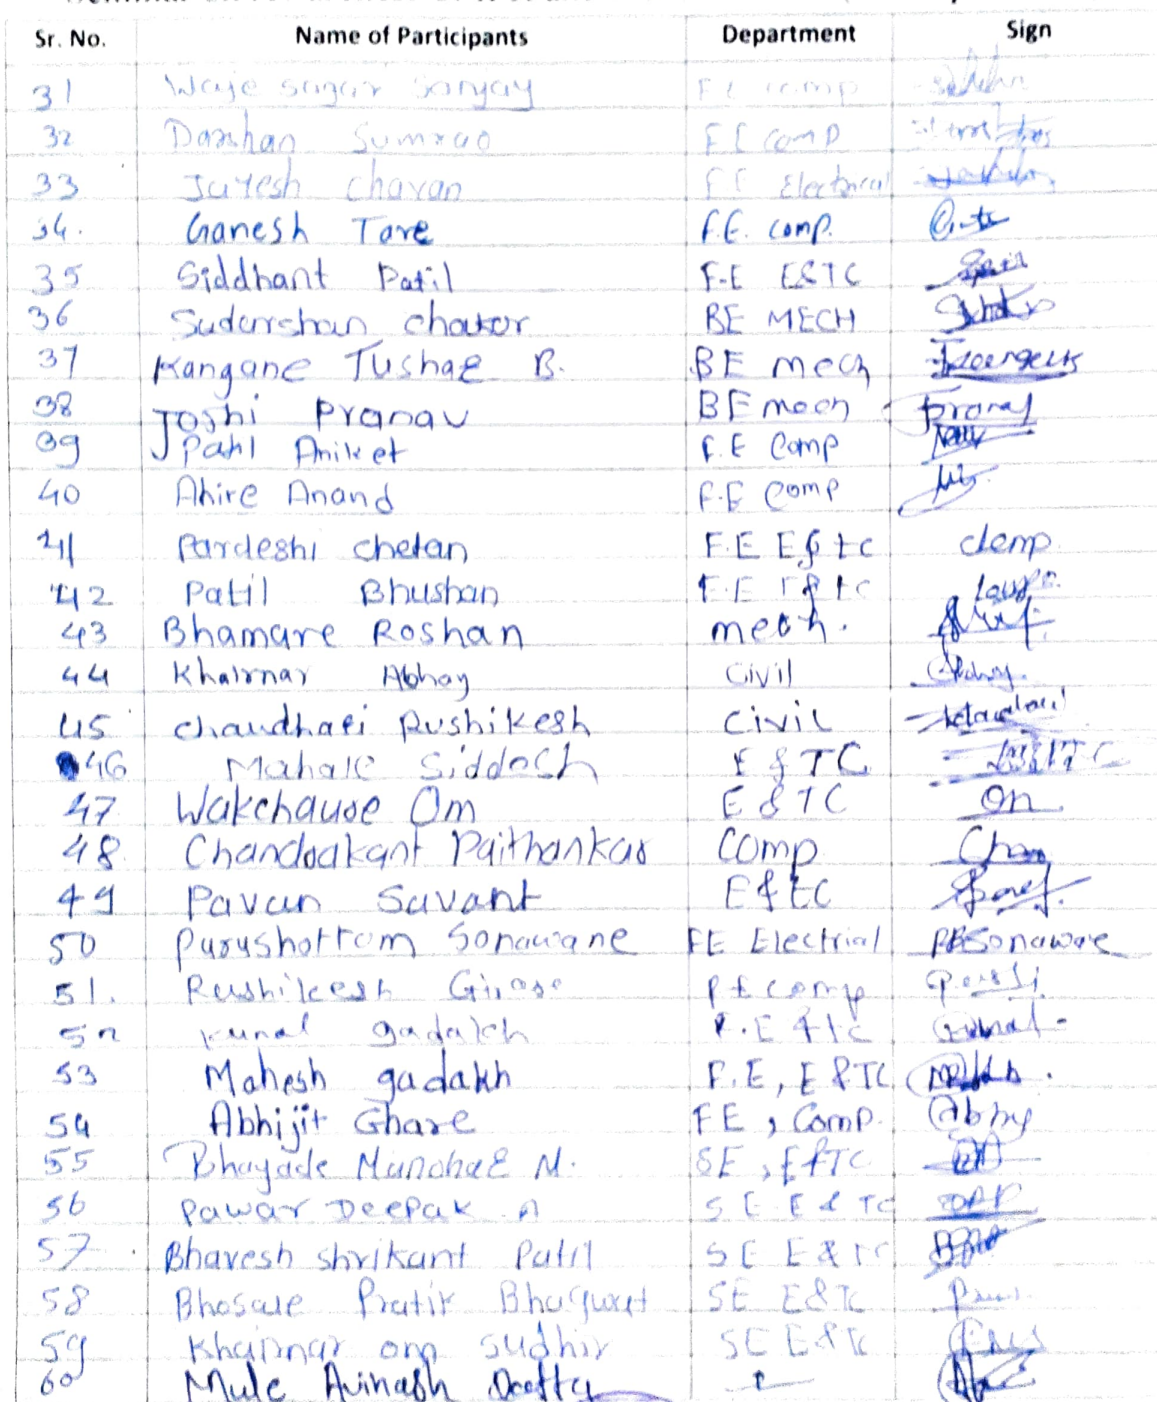 Sr. No. Name of Participants Department Sign
31 Waje sagar Sanjay F E comp
32 Darshan Sumrao F E comp
33 Jayesh chavan F E Electrical
34. Ganesh Tare F.E. comp.
35 Siddhant Patil F.E E&TC
36 Sudarshan chator BE MECH
37 Kangane Tushar B. BE mech
38 Joshi Pranav BE mech Pranav
39 Patil Aniket F.E Comp
40 Ahire Anand F.E comp
41 Pardeshi chetan F.E E&tc
42 Patil Bhushan F.E E&tc
43 Bhamare Roshan mech.
44 Khairnar Abhay Civil
45 chaudhari Rushikesh Civil
46 Mahale Siddesh E&TC
47 Wakchaure Om E&TC Om
48 Chandrakant Paithankar Comp Chan
49 Pavan Savant E&TC
50 Purushottam Sonawane FE Electrial PBSonawane
51. Rushikesh Girase FE comp
52 kunal gadakh F.E &tc Kunal
53 Mahesh gadakh F.E, E&TC
54 Abhijit Ghare FE, Comp. Abhy
55 Bhayade Manohar M. SE, E&TC
56 Pawar Deepak A SE E & TC
57 Bhavesh shrikant Patil SE E&TC
58 Bhosale Pratik Bhagwat SE E&TC
59 Khairnar om sudhir SE E&TC
60 Mule Avinash